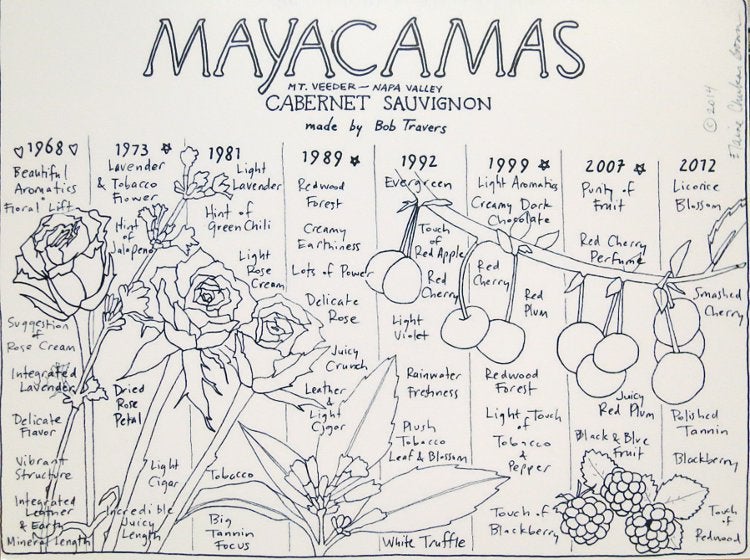 MAYACAMAS
MT. VEEDER — NAPA VALLEY
CABERNET SAUVIGNON
made by Bob Travers
© 2014
Elaine Chukan Brown
♡1968♡
Beautiful
Aromatics
Floral Lift
Suggestion
of
Rose Cream
Integrated
Lavender
Delicate
Flavor
Vibrant
Structure
Integrated
Leather
& Earth
Mineral Length
1973 ☆
Lavender
& Tobacco
Flower
Hint
of
Jalapeño
Dried
Rose
Petal
Light
Cigar
Incredible
Juicy
Length
1981
Light
Lavender
Hint of
Green Chili
Light
Rose
Cream
Tobacco
Big
Tannin
Focus
1989 ☆
Redwood
Forest
Creamy
Earthiness
Lots of Power
Delicate
Rose
Juicy
Crunch
Leather
&
Light
Cigar
1992
Evergreen
Touch
of
Red Apple
Red
Cherry
Light
Violet
Rainwater
Freshness
Plush
Tobacco
Leaf & Blossom
White Truffle
1999 ☆
Light Aromatics
Creamy Dark
Chocolate
Red
Cherry
Red
Plum
Redwood
Forest
Light Touch
of
Tobacco
&
Pepper
Touch of
Blackberry
2007 ☆
Purity of
Fruit
Red Cherry
Perfume
Juicy
Red Plum
Black & Blue
Fruit
2012
Licorice
Blossom
Smashed
Cherry
Polished
Tannin
Blackberry
Touch
of
Redwood